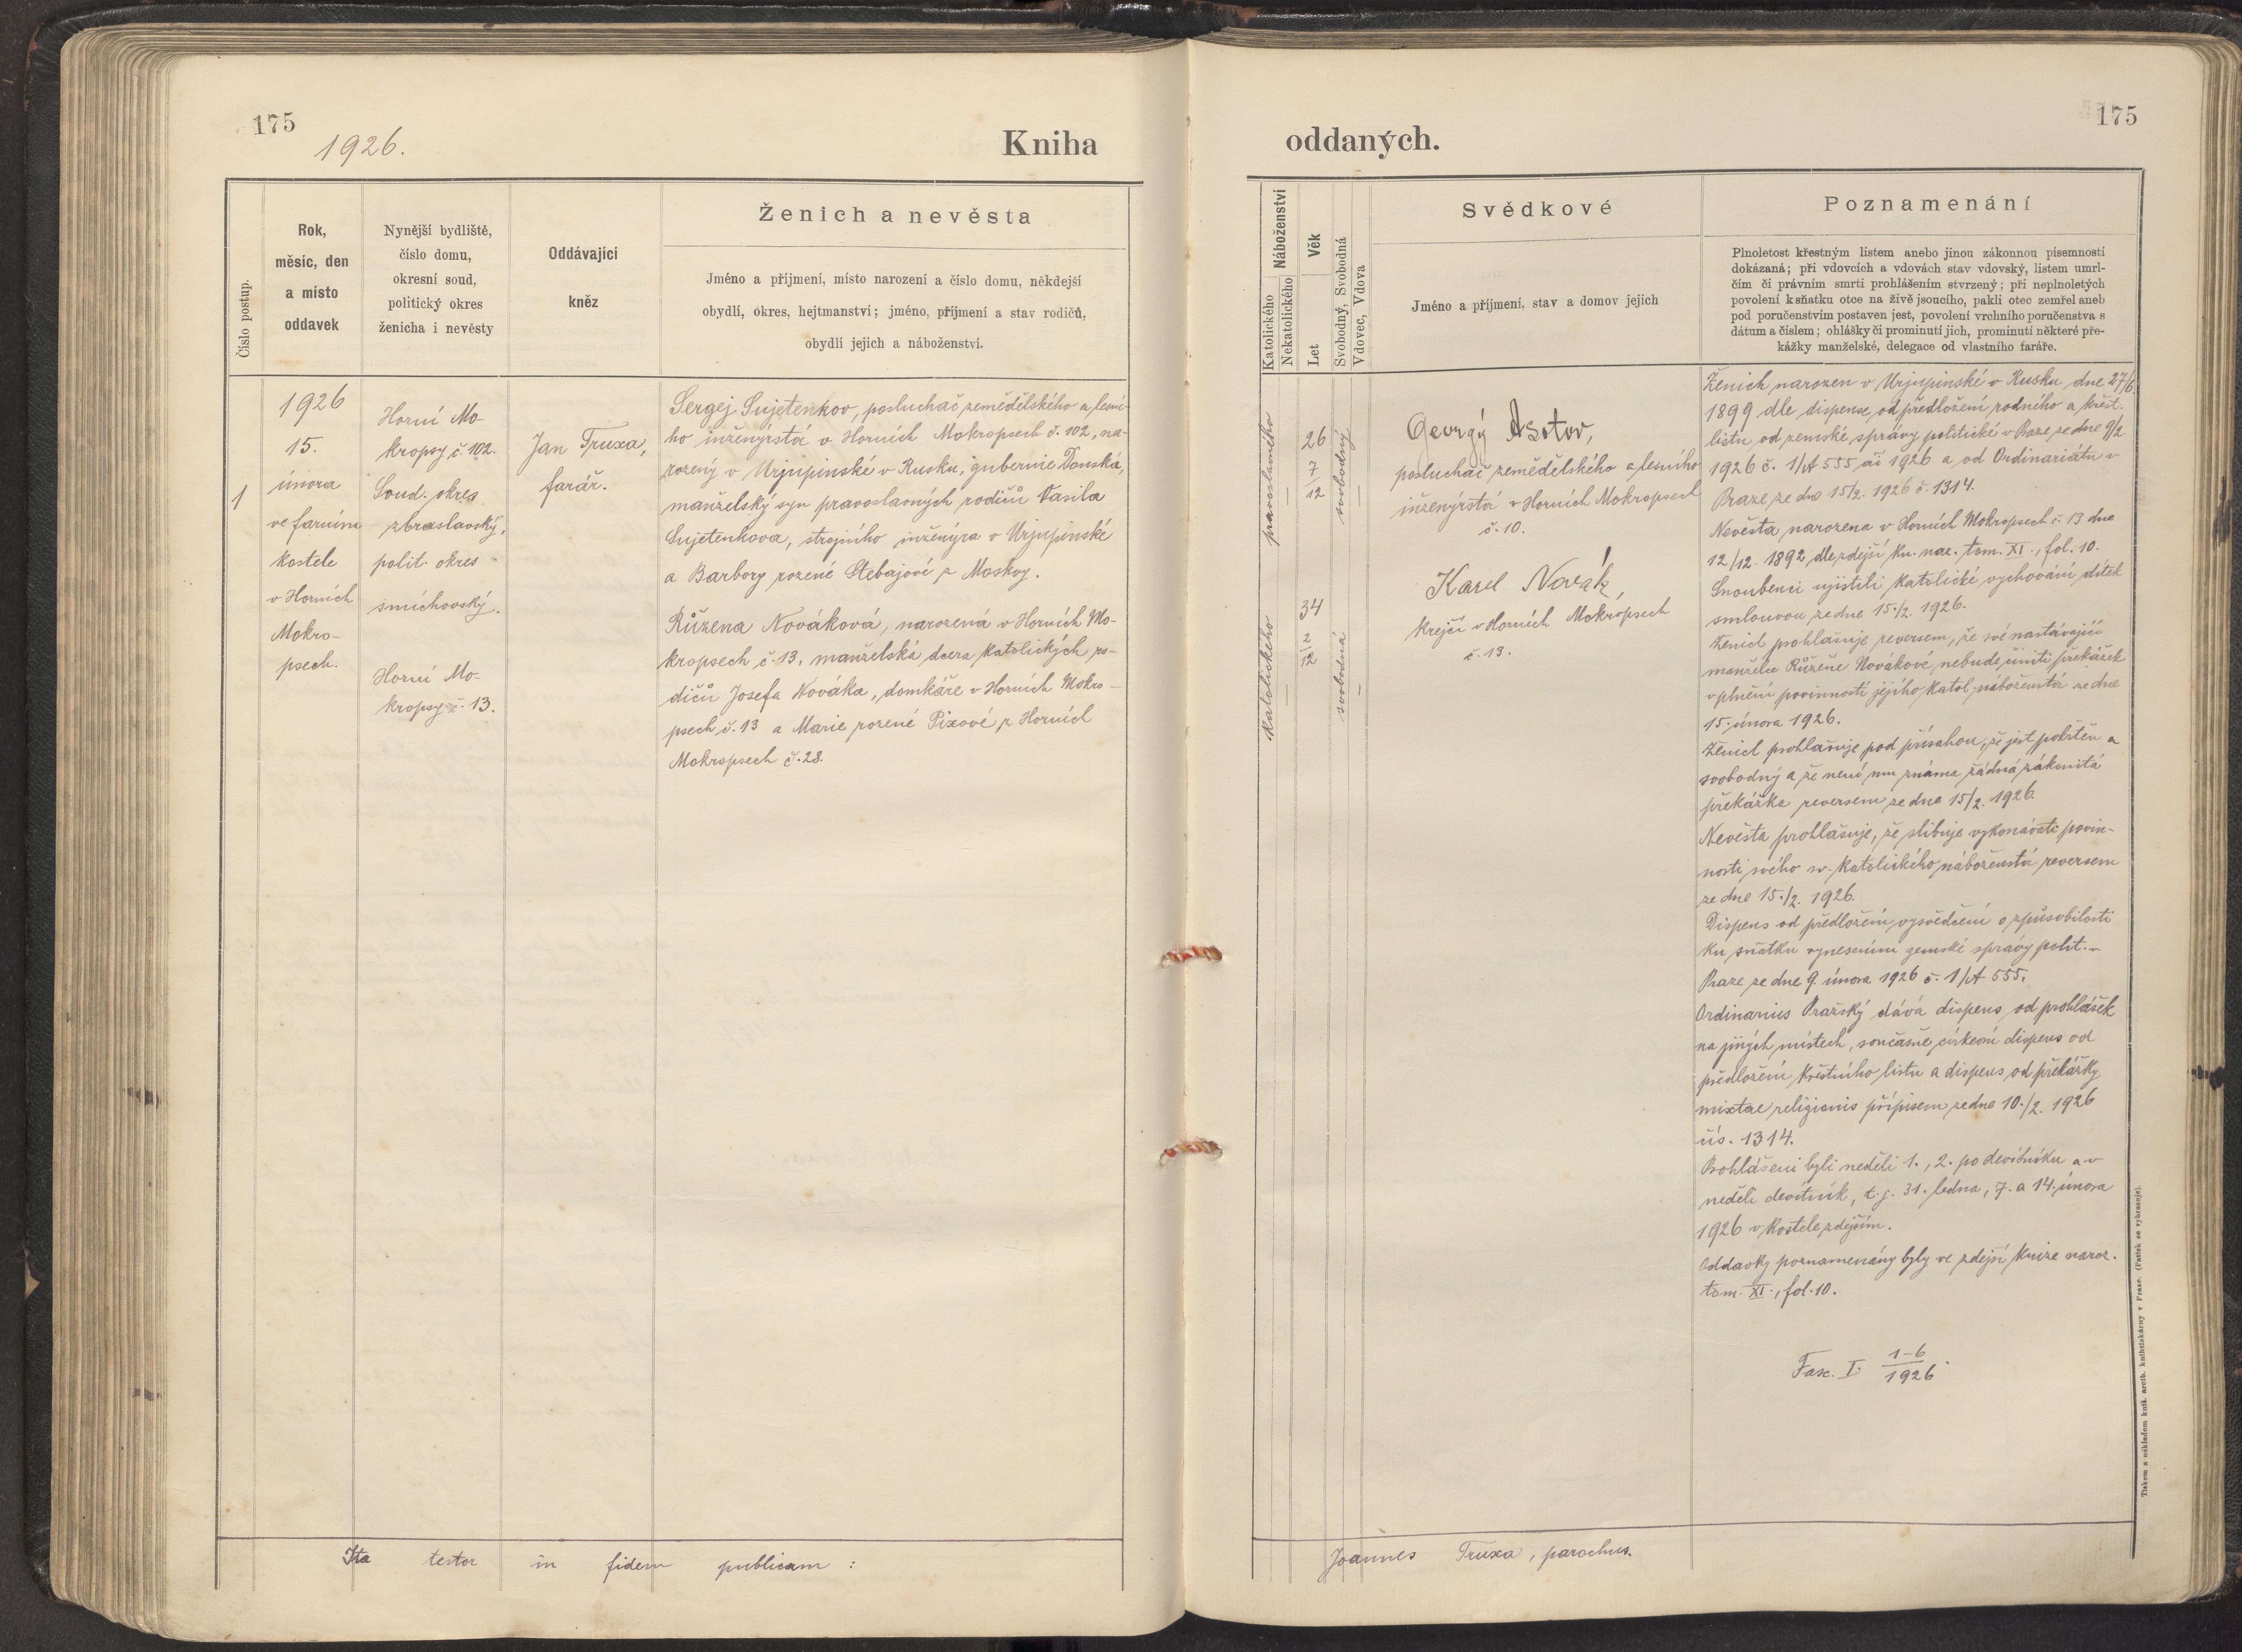 175
1926.
Kniha
Číslo postup.
Rok,
měsíc, den
a místo
oddavek
Nynější bydliště,
číslo domu,
okresní soud,
politický okres
ženicha i nevěsty
Oddávající
kněz
Ženich a nevěsta
Jméno a příjmení, místo narození a číslo domu, někdejší
obydlí, okres, hejtmanství; jméno, příjmení a stav rodičů,
obydlí jejich a náboženství.
1
1926
15.
února
ve farním
kostele
v Horních
Mokro-
psech.
Horní Mo-
kropsy č. 102.
Soud. okres
zbraslavský,
polit. okres
smíchovský.
Horní Mo-
kropsy č. 13.
Jan Truxa,
farář.
Sergej Sujetenkov, posluchač zemědělského a lesní-
ho inženýrství v Horních Mokropsech č. 102, na-
rozený v Urjupinské v Rusku, gubernie Donská,
manželský syn pravoslavných rodičů Vasila
Sujetenkova, strojního inženýra v Urjupinské
a Barbory rozené Stebajové z Moskvy.
Růžena Nováková, narozená v Horních Mo-
kropsech č. 13, manželská dcera katolických ro-
dičů Josefa Nováka, domkáře v Horních Mokro-
psech č. 13 a Marie rozené Pixové z Horních
Mokropsech č. 28.
Ita testor in fidem publicam :
175
oddaných.
Náboženství
Katolického
Nekatolického
Věk
Let
Svobodný, Svobodná
Vdovec, Vdova
Svědkové
Jméno a příjmení, stav a domov jejich
Poznamenání
Plnoletost křestným listem anebo jinou zákonnou písemností
dokázaná; při vdovcích a vdovách stav vdovský, listem umrl-
čím či právním smrti prohlášením stvrzený; při neplnoletých
povolení k sňatku otce na živě jsoucího, pakli otec zemřel aneb
pod poručenstvím postaven jest, povolení vrchního poručenstva s
dátum a číslem; ohlášky či prominutí jich, prominutí některé pře-
kážky manželské, delegace od vlastního faráře.
pravoslavného
26
7
12
svobodný
katolického
34
2
12
svobodná
Georgý Asotov,
posluchač zemědělského a lesního
inženýrství v Horních Mokropsech
č. 10.
Karel Novák,
krejčí v Horních Mokropsech
č. 13.
Ženich narozen v Urjupinské v Rusku dne 27/6
1899 dle dispense od předložení rodného a křest.
listu od zemské správy politické v Praze ze dne 9/2
1926 č. 1/A 555 ai 1926 a od Ordinariátu v
Praze ze dne 15/2. 1926 č. 1314.
Nevěsta narozena v Horních Mokropsech č. 13 dne
12/12. 1892 dle zdejší kn. nar. tom. XI., fol. 10.
Snoubenci ujistili katolické vychování dítek
smlouvou ze dne 15./2. 1926.
Ženich prohlašuje reversem, že své nastávající
manželce Růženě Novákové nebude činiti překážek
v plnění povinností jejího katol. náboženství ze dne
15. února 1926.
Ženich prohlašuje pod přísahou, že jest pokřtěn a
svobodný a že není mu známa žádná zákonitá
překážka reversem ze dne 15/2. 1926.
Nevěsta prohlašuje, že slibuje vykonávati povin-
nosti svého sv. katolického náboženství reversem
ze dne 15./2. 1926.
Dispens od předložení vysvědčení o způsobilosti
ku sňatku vynesením zemské správy polit. v
Praze ze dne 9. února 1926 č. 1/A 555.
Ordinarius Pražský dává dispens od prohlášek
na jiných místech, současně církevní dispens od
předložení křestního listu a dispens od překážky
mixtae religionis přípisem ze dne 10./2. 1926
čís. 1314.
Prohlášeni byli neděli 1., 2. po devítníku a v
neděli devítník, t. j. 31. ledna, 7. a 14. února
1926 v kostele zdejším.
Oddavky poznamenány byly ve zdejší knize naroz.
tom. XI., fol. 10.
Fasc. I. 1-6
1926.
Joannes Truxa, parochus.
Tiskem a nákladem kníž. arcib. knihtiskárny v Praze. (Patisk se vyhrazuje).